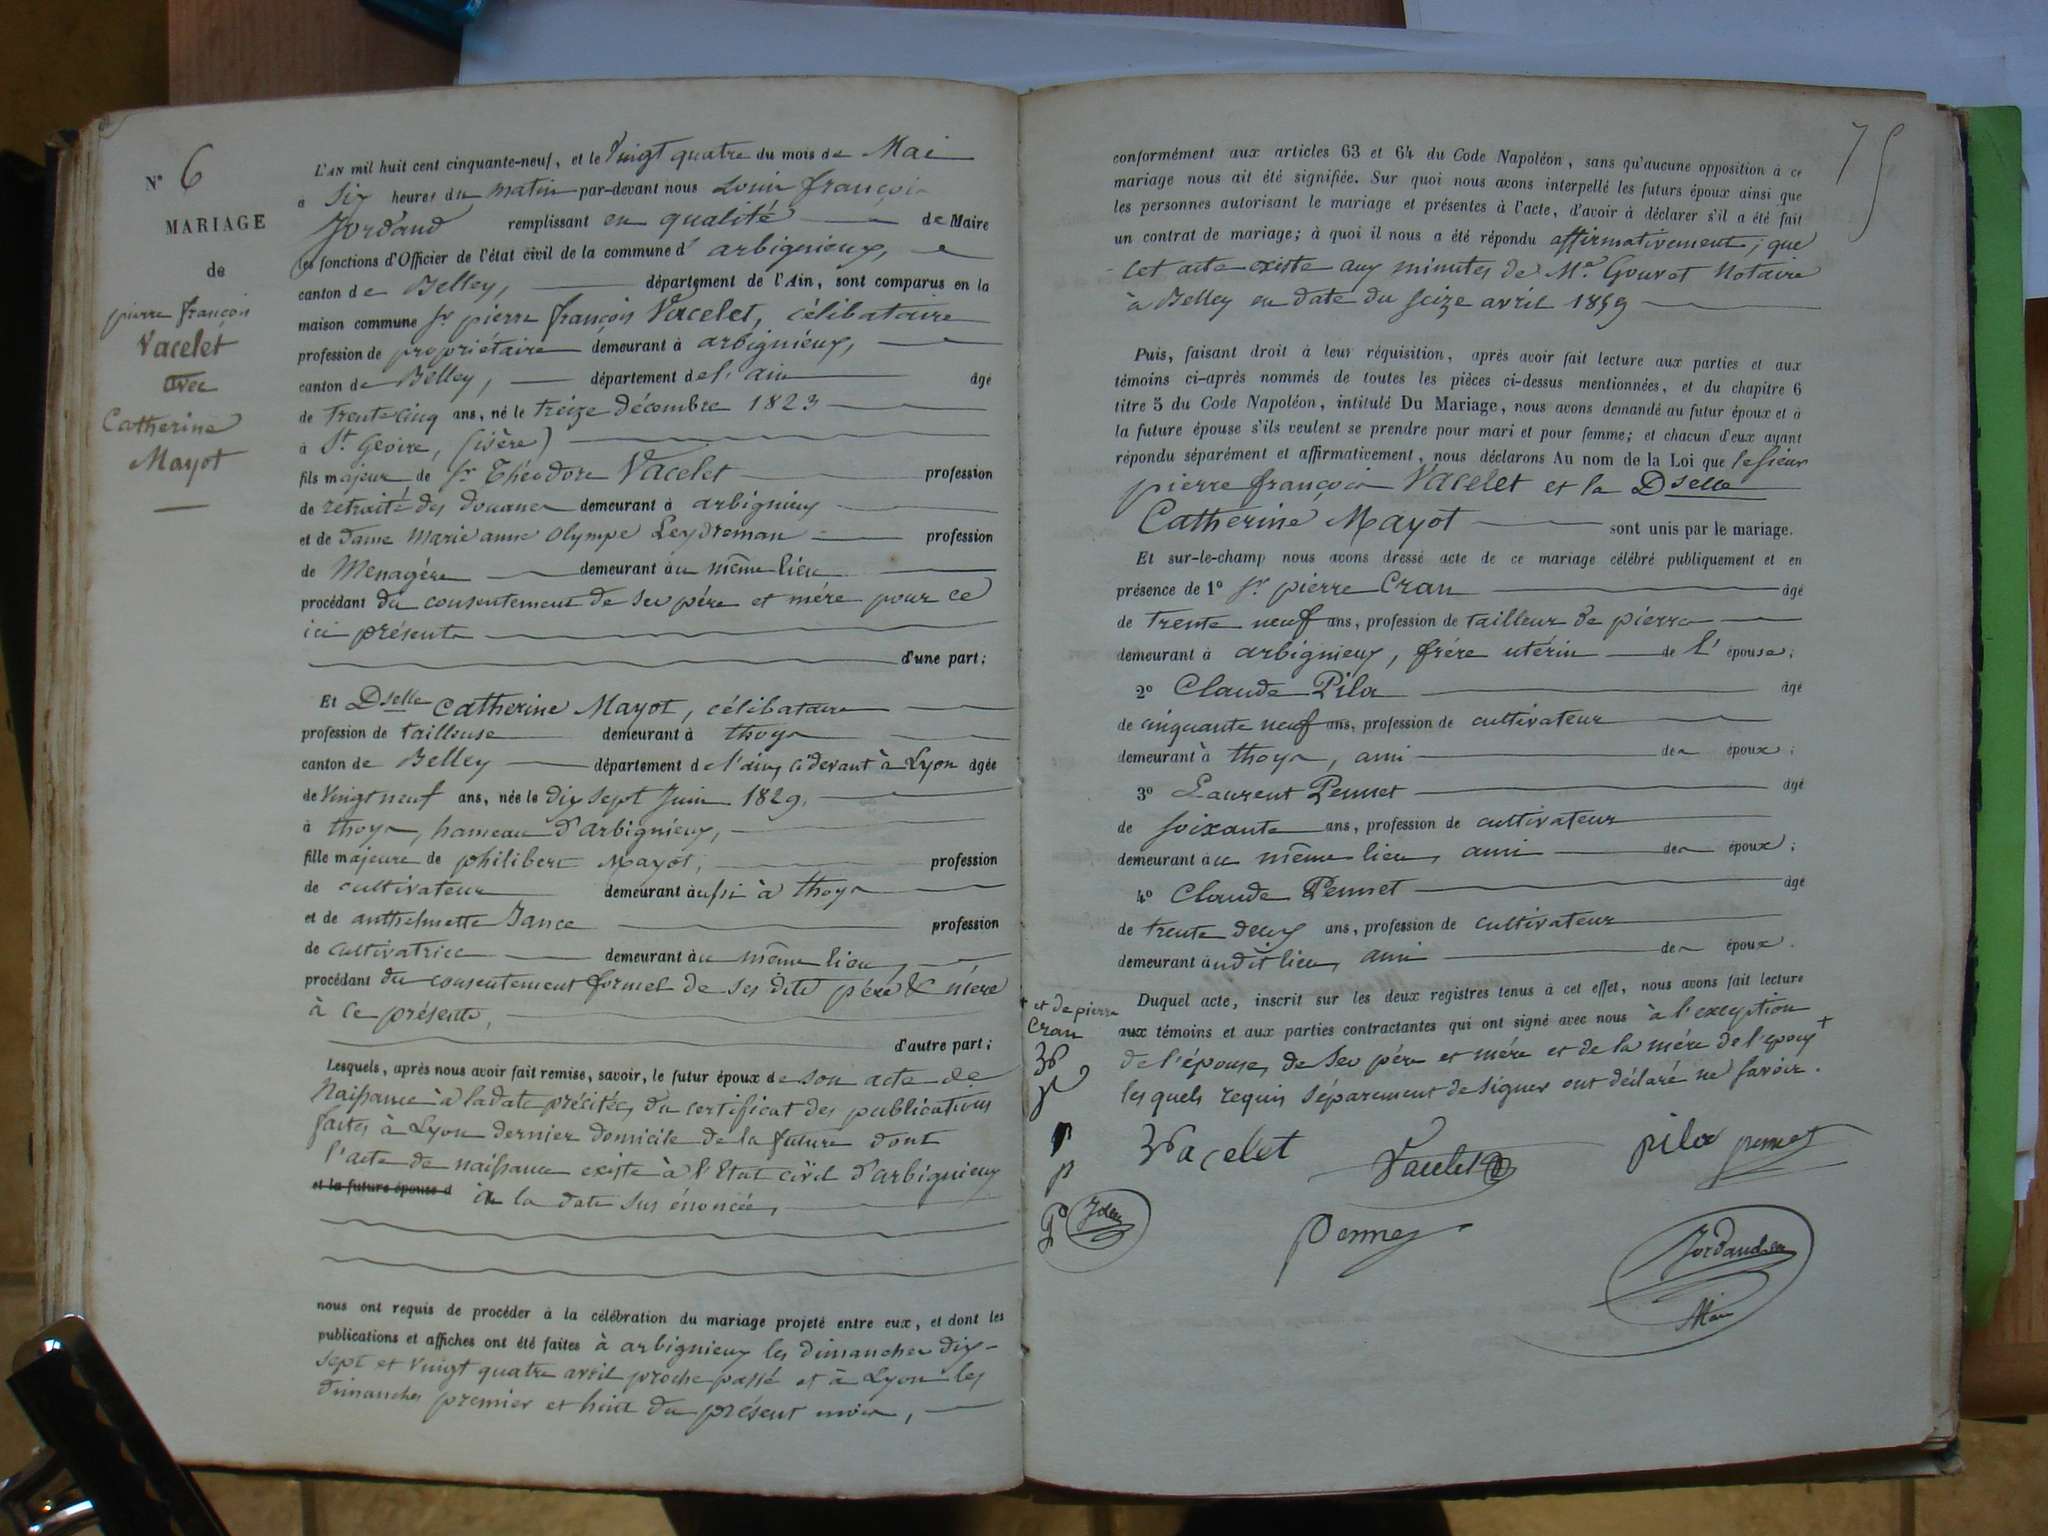 N° 6
MARIAGE
de
pierre françois
Vacelet
avec
Catherine
Mayot
L'AN mil huit cent cinquante-neuf, et le Vingt quatre du mois de Mai
a Six heures du matin par-devant nous Louis françois
Jordand remplissant en qualité de Maire
les fonctions d'Officier de l'état civil de la commune d' arbignieux,
canton de Belley, département de l'Ain, sont comparus en la
maison commune Sr pierre françois Vacelet, célibataire
profession de propriétaire demeurant à arbignieux,
canton de Belley, département de l'ain âgé
de trente cinq ans, né le treize décembre 1823
à St Geoire, (isère)
fils majeur de Sr Théodore Vacelet profession
de retraité des douanes demeurant à arbignieux
et de dame Marie anne Olympe Leydreman profession
de Menagère demeurant au même lieu
procédant du consentement de ses père et mère pour ce
ici présents
d'une part;
Et Dselle Catherine Mayot, célibataire
profession de tailleuse demeurant à thoys
canton de Belley département de l'ain, cidevant à Lyon âgée
de Vingt neuf ans, née le dix sept Juin 1829,
à thoys, hameau d'arbignieux,
fille majeure de philibert Mayot, profession
de cultivateur demeurant aussi à thoys
et de anthelmette Jance profession
de cultivatrice demeurant au même lieu,
procédant du consentement formel de ses dits père & mère
à ce présents,
d'autre part;
Lesquels, après nous avoir fait remise, savoir, le futur époux de son acte de
Naissance à la date précitée, du certificat des publications
faites à Lyon dernier domicile de la future dont
l'acte de naissance existe à l'Etat civil d'arbignieux
et la future épouse d à la date sus énoncée,
nous ont requis de procéder à la célébration du mariage projeté entre eux, et dont les
publications et affiches ont été faites à arbignieux les dimanches dix-
sept et vingt quatre avril proche passé et à Lyon les
dimanches premier et huit du présent mois,
75
conformément aux articles 63 et 64 du Code Napoléon, sans qu'aucune opposition à ce
mariage nous ait été signifiée. Sur quoi nous avons interpellé les futurs époux ainsi que
les personnes autorisant le mariage et présentes à l'acte, d'avoir à déclarer s'il a été fait
un contrat de mariage; à quoi il nous a été répondu affirmativement; que
cet acte existe aux minutes de Me Gouvet Notaire
à Belley en date du seize avril 1859
Puis, faisant droit à leur réquisition, après avoir fait lecture aux parties et aux
témoins ci-après nommés de toutes les pièces ci-dessus mentionnées, et du chapitre 6
titre 5 du Code Napoléon, intitulé Du Mariage, nous avons demandé au futur époux et à
la future épouse s'ils veulent se prendre pour mari et pour femme; et chacun d'eux ayant
répondu séparément et affirmativement, nous déclarons Au nom de la Loi que le sieur
pierre françois Vacelet et la Dselle
Catherine Mayot sont unis par le mariage.
Et sur-le-champ nous avons dressé acte de ce mariage célébré publiquement et en
présence de 1° Sr pierre Cran âgé
de trente neuf ans, profession de tailleur de pierre
demeurant à arbignieux, frère utérin de l' épouse;
2° Claude Pila âgé
de cinquante neuf ans, profession de cultivateur
demeurant à thoys, ami des époux;
3° Laurent Pennet âgé
de soixante ans, profession de cultivateur
demeurant au même lieu, ami des époux;
4° Claude Pennet âgé
de trente deux ans, profession de cultivateur
demeurant au dit lieu, ami des époux.
Duquel acte, inscrit sur les deux registres tenus à cet effet, nous avons fait lecture
aux témoins et aux parties contractantes qui ont signé avec nous à l'exception
de l'épouse, de ses père et mère et de la mère de l'époux +
lesquels requis séparément de signer ont déclaré ne savoir.
+ et de pierre
Cran
Vacelet
Vacelet
pila
pennet
Pennet
Jordand
Mai